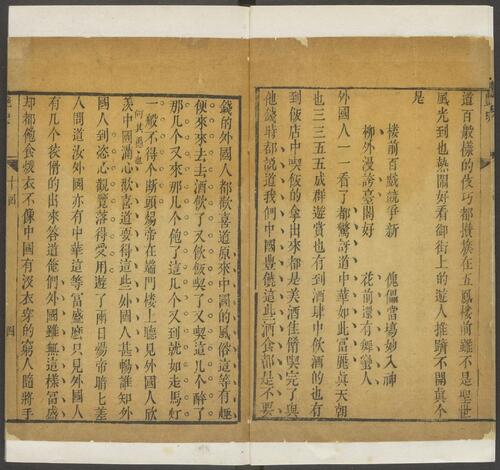 道百般樣的伎巧都攢簇在五鳳樓前雖不是聖世
風光到也熱鬧好看御街上的遊人推擠不開真个
是
樓前百戲競爭新　傀儡當塲妙入神
柳外漫誇臺閣好　花前還有舞蠻人
外國人一一看了都驚訝道中華如此富麗真天朝
也三三五五成群遊賞也有到酒肆中飲酒的也有
到飯店中喫飯的拿出來都是美酒佳肴喫完了與
他錢時都說道我們中國豐饒這些酒食都是不要
錢的外國人都歡喜道原來中國的風俗這等有趣
便來來去去酒飲了又飲飯喫了又喫這几个醉了
那几个又來那几个飽了這几个又到就如走馬灯
一般不得个斷頭煬帝在端門楼上聽見外國人欣
羨中國滿心歡喜道耍得這些外國人甚暢誰知外
國人到恣心觀覽落得受用遊了兩日煬帝暗七差
人問道汝外國亦有中華這等富盛麽只見外國人
有几个狡猾的出來答道他們外國雖無這樣富盛
却都飽食煖衣不像中國有沒衣穿的窮人隨將手
十四
四